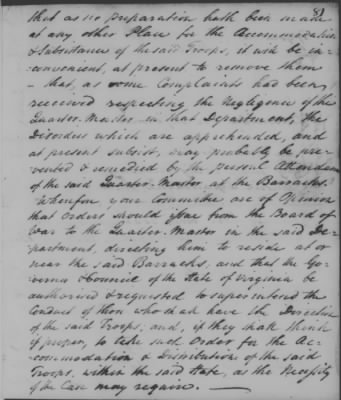 81
that as no preparation hath been made
at any other Place for the Accommodation
& Subsistance of the said Troops, it will be in-
convenient, at present to remove them
- that, as some Complaints had been
received respecting the Negligence of the
Quarter Master in that Department, the
Disorders which are apprehended, and
at present subsist, may probably be pre-
vented & remedied by the present Attendance
of the said Quarter Master, at the Barracks.
Wherefore your Committee are of Opinion
that Orders should issue from the Board of
War to the Quarter Master in the said De-
partment, directing him to reside at or
near the said Barracks, and that the Go-
vernor & Council of the State of Virginia be
authorised & requested to superintend the
Conduct of those who shall have the Direction
of the said Troops, and, if they shall think
it proper, to take such Order for the Ac-
commodation & Distribution of the said
Troops, within the said State, as the Necessity
of the Case may require. —